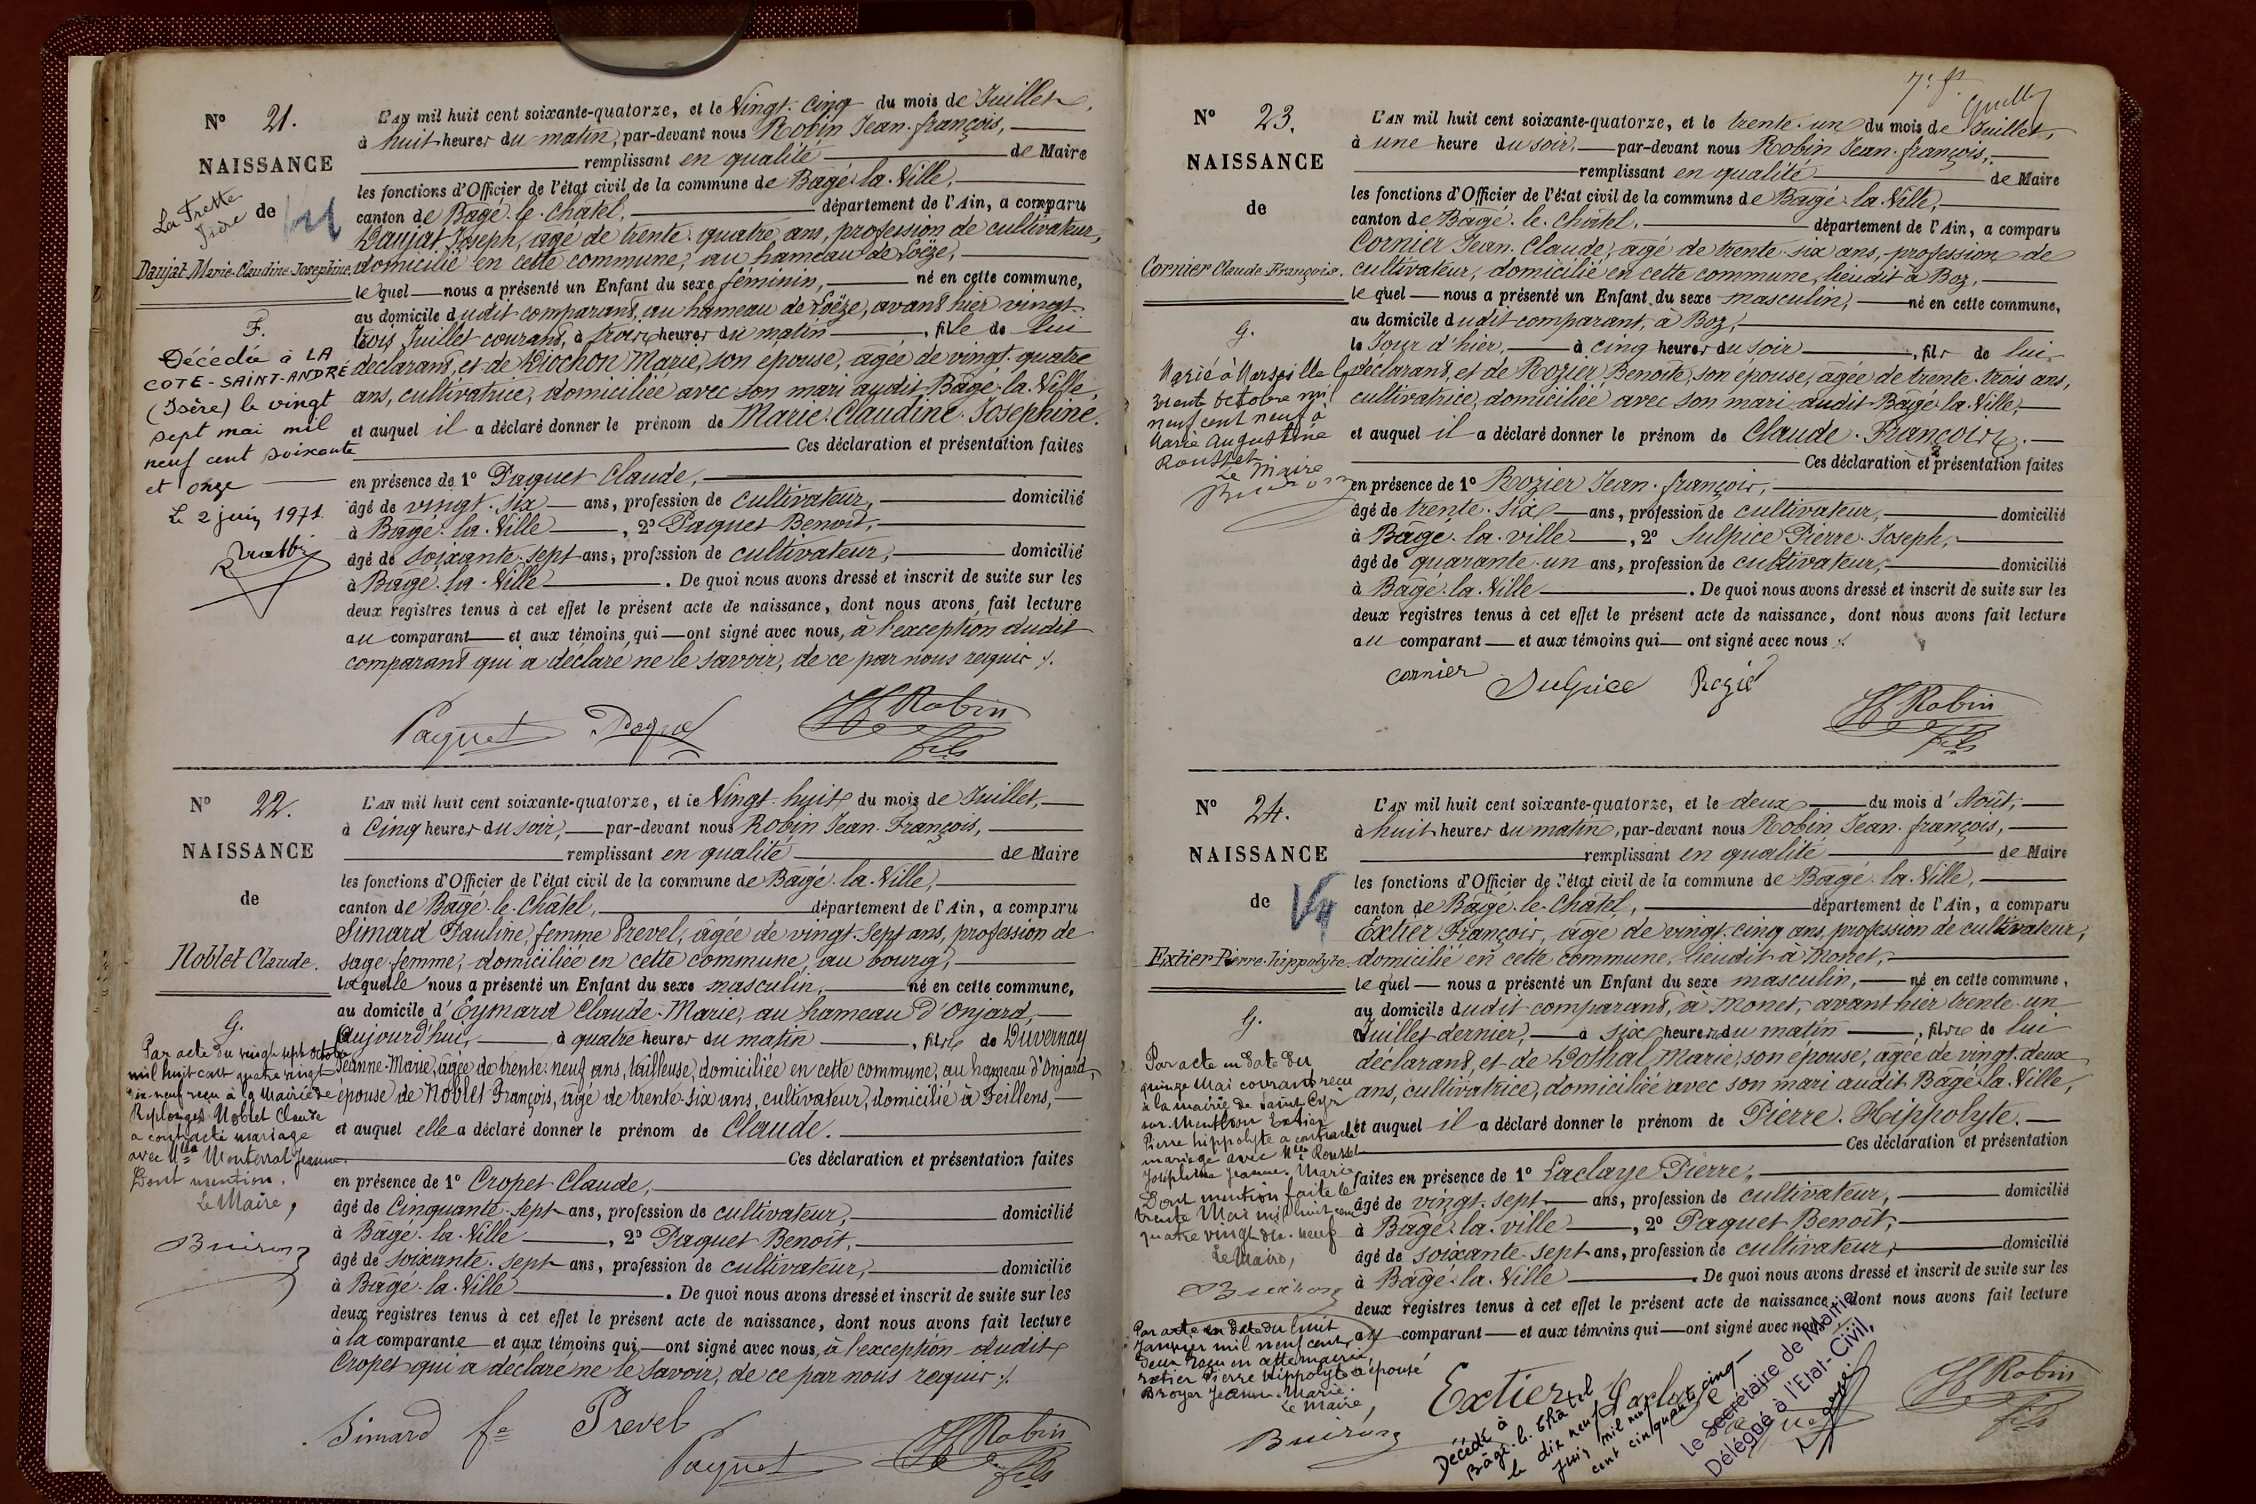 N° 21.
NAISSANCE
de
La Frette
Isère
Daujat Marie-Claudine Josephine.
F.
Décédée à LA
COTE-SAINT-ANDRÉ
(Isère) le vingt
sept mai mil
neuf cent soixante
et onze
Le 2 juin 1971.
L'AN mil huit cent soixante-quatorze, et le Vingt-cinq du mois de Juillet,
à huit heures du matin, par-devant nous Robin Jean-françois,
remplissant en qualité de Maire
les fonctions d'Officier de l'état civil de la commune de Bâgé-la-Ville,
canton de Bâgé-le-Châtel, département de l'Ain, a comparu
Daujat Joseph, âgé de trente-quatre ans, profession de cultivateur,
domicilié en cette commune, au hameau de Loëze,
lequel nous a présenté un Enfant du sexe féminin, né en cette commune,
au domicile dudit comparant, au hameau de Loëze, avant hier vingt-
trois Juillet courant, à trois heures du matin, fille de lui
déclarant, et de Diochon Marie, son épouse, âgée de vingt-quatre
ans, cultivatrice, domiciliée avec son mari audit Bâgé-la-Ville,
et auquel il a déclaré donner le prénom de Marie-Claudine-Josephine.
Ces déclaration et présentation faites
en présence de 1° Paquet Claude,
âgé de vingt-six ans, profession de cultivateur, domicilié
à Bâgé-la-Ville, 2° Paquet Benoit,
âgé de soixante-sept ans, profession de cultivateur, domicilié
à Bâgé-la-Ville. De quoi nous avons dressé et inscrit de suite sur les
deux registres tenus à cet effet le présent acte de naissance, dont nous avons fait lecture
au comparant et aux témoins qui ont signé avec nous, à l'exception dudit
comparant qui a déclaré ne le savoir, de ce par nous requis ./.
Paquet Paquet Robin
fils
N° 22.
NAISSANCE
de
Noblet Claude.
G.
Par acte du vingt sept octobre
mil huit cent quatre vingt
dix-neuf reçu à la Mairie de
Replonges Noblet Claude
a contracté mariage
avec Mlle Monterrat Jeanne.
Dont mention.
Le Maire,
Buiron
L'AN mil huit cent soixante-quatorze, et le Vingt-huit du mois de Juillet,
à Cinq heures du soir, par-devant nous Robin Jean-François,
remplissant en qualité de Maire
les fonctions d'Officier de l'état civil de la commune de Bâgé-la-Ville,
canton de Bâgé-le-Châtel, département de l'Ain, a comparu
Simard Pauline, femme Prevel, âgée de vingt-sept ans, profession de
sage-femme, domiciliée en cette commune, au bourg,
laquelle nous a présenté un Enfant du sexe masculin, né en cette commune,
au domicile d'Eymard Claude-Marie, au hameau d'Onjard,
aujourd'hui, à quatre heures du matin, fils de Duvernay
Jeanne-Marie, âgée de trente-neuf ans, tailleuse, domiciliée en cette commune, au hameau d'Onjard,
épouse de Noblet François, âgé de trente-six ans, cultivateur, domicilié à Feillens,
et auquel elle a déclaré donner le prénom de Claude.
Ces déclaration et présentation faites
en présence de 1° Cropet Claude,
âgé de Cinquante-sept ans, profession de cultivateur, domicilié
à Bâgé-la-Ville, 2° Paquet Benoit,
âgé de soixante-sept ans, profession de cultivateur, domicilié
à Bâgé-la-Ville. De quoi nous avons dressé et inscrit de suite sur les
deux registres tenus à cet effet le présent acte de naissance, dont nous avons fait lecture
à la comparante et aux témoins qui ont signé avec nous, à l'exception dudit
Cropet qui a déclaré ne le savoir, de ce par nous requis ./.
Simard fe Prevel
Paquet Robin
fils
N° 23.
NAISSANCE
de
Cornier Claude François.
G.
Marié à Marseille le
trente octobre mil
neuf cent neuf à
Marie Augustine
Rousset
Le Maire
Buiron
L'AN mil huit cent soixante-quatorze, et le trente-un du mois de Juillet,
à une heure du soir, par-devant nous Robin Jean-françois,
remplissant en qualité de Maire
les fonctions d'Officier de l'état civil de la commune de Bâgé-la-Ville,
canton de Bâgé-le-Châtel, département de l'Ain, a comparu
Cornier Jean-Claude, âgé de trente-six ans, profession de
cultivateur, domicilié en cette commune, lieudit à Boz,
lequel nous a présenté un Enfant du sexe masculin, né en cette commune,
au domicile dudit comparant, à Boz,
le Jour d'hier, à cinq heures du soir, fils de lui
déclarant, et de Rozier Benoite, son épouse, âgée de trente-trois ans,
cultivatrice, domiciliée avec son mari audit Bâgé-la-Ville,
et auquel il a déclaré donner le prénom de Claude-François.
Ces déclaration et présentation faites
en présence de 1° Rozier Jean-françois,
âgé de trente-six ans, profession de cultivateur, domicilié
à Bâgé-la-ville, 2° Sulpice Pierre-Joseph,
âgé de quarante-un ans, profession de cultivateur, domicilié
à Bâgé-la-Ville. De quoi nous avons dressé et inscrit de suite sur les
deux registres tenus à cet effet le présent acte de naissance, dont nous avons fait lecture
au comparant et aux témoins qui ont signé avec nous ./.
cornier Sulpice Rozié
Robin
fils
N° 24.
NAISSANCE
de
Extier Pierre-hippolyte.
G.
Par acte en date du
quinze Mai courant reçu
à la mairie de Saint Cyr
sur Menthon Extier
Pierre hippolyte a contracté
mariage avec Mlle Rousset
Joséphine Jeanne-Marie
Dont mention faite le
trente Mai mil huit cent
quatre vingt dix-neuf
Le Maire,
Buiron
Par acte en date du huit
Janvier mil neuf cent
deux reçu en cette mairie,
Extier Pierre Hippolyte a épousé
Broyer Jeanne-Marie.
Le Maire,
Buiron
L'AN mil huit cent soixante-quatorze, et le deux du mois d'Août,
à huit heures du matin, par-devant nous Robin Jean-françois,
remplissant en qualité de Maire
les fonctions d'Officier de l'état civil de la commune de Bâgé-la-Ville,
canton de Bâgé-le-Châtel, département de l'Ain, a comparu
Extier François, âgé de vingt-cinq ans, profession de cultivateur,
domicilié en cette commune, lieudit à Monet,
lequel nous a présenté un Enfant du sexe masculin, né en cette commune,
au domicile dudit comparant, à Monet, avant hier trente-un
Juillet dernier, à six heures du matin, fils de lui
déclarant, et de Dothal Marie, son épouse, âgée de vingt-deux
ans, cultivatrice, domiciliée avec son mari audit Bâgé-la-Ville,
et auquel il a déclaré donner le prénom de Pierre-Hippolyte.
Ces déclaration et présentation
faites en présence de 1° Laclaye Pierre,
âgé de vingt-sept ans, profession de cultivateur, domicilié
à Bâgé-la-ville, 2° Paquet Benoit,
âgé de soixante-sept ans, profession de cultivateur, domicilié
à Bâgé-la-Ville. De quoi nous avons dressé et inscrit de suite sur les
deux registres tenus à cet effet le présent acte de naissance, dont nous avons fait lecture
au comparant et aux témoins qui ont signé avec nous
Extier
Robin
fils
Décédé à
Bâgé-le-Châtel
le dix neuf
juin mil neuf
cent cinquante cinq
Le Secrétaire de Mairie
Délégué à l'Etat-Civil,